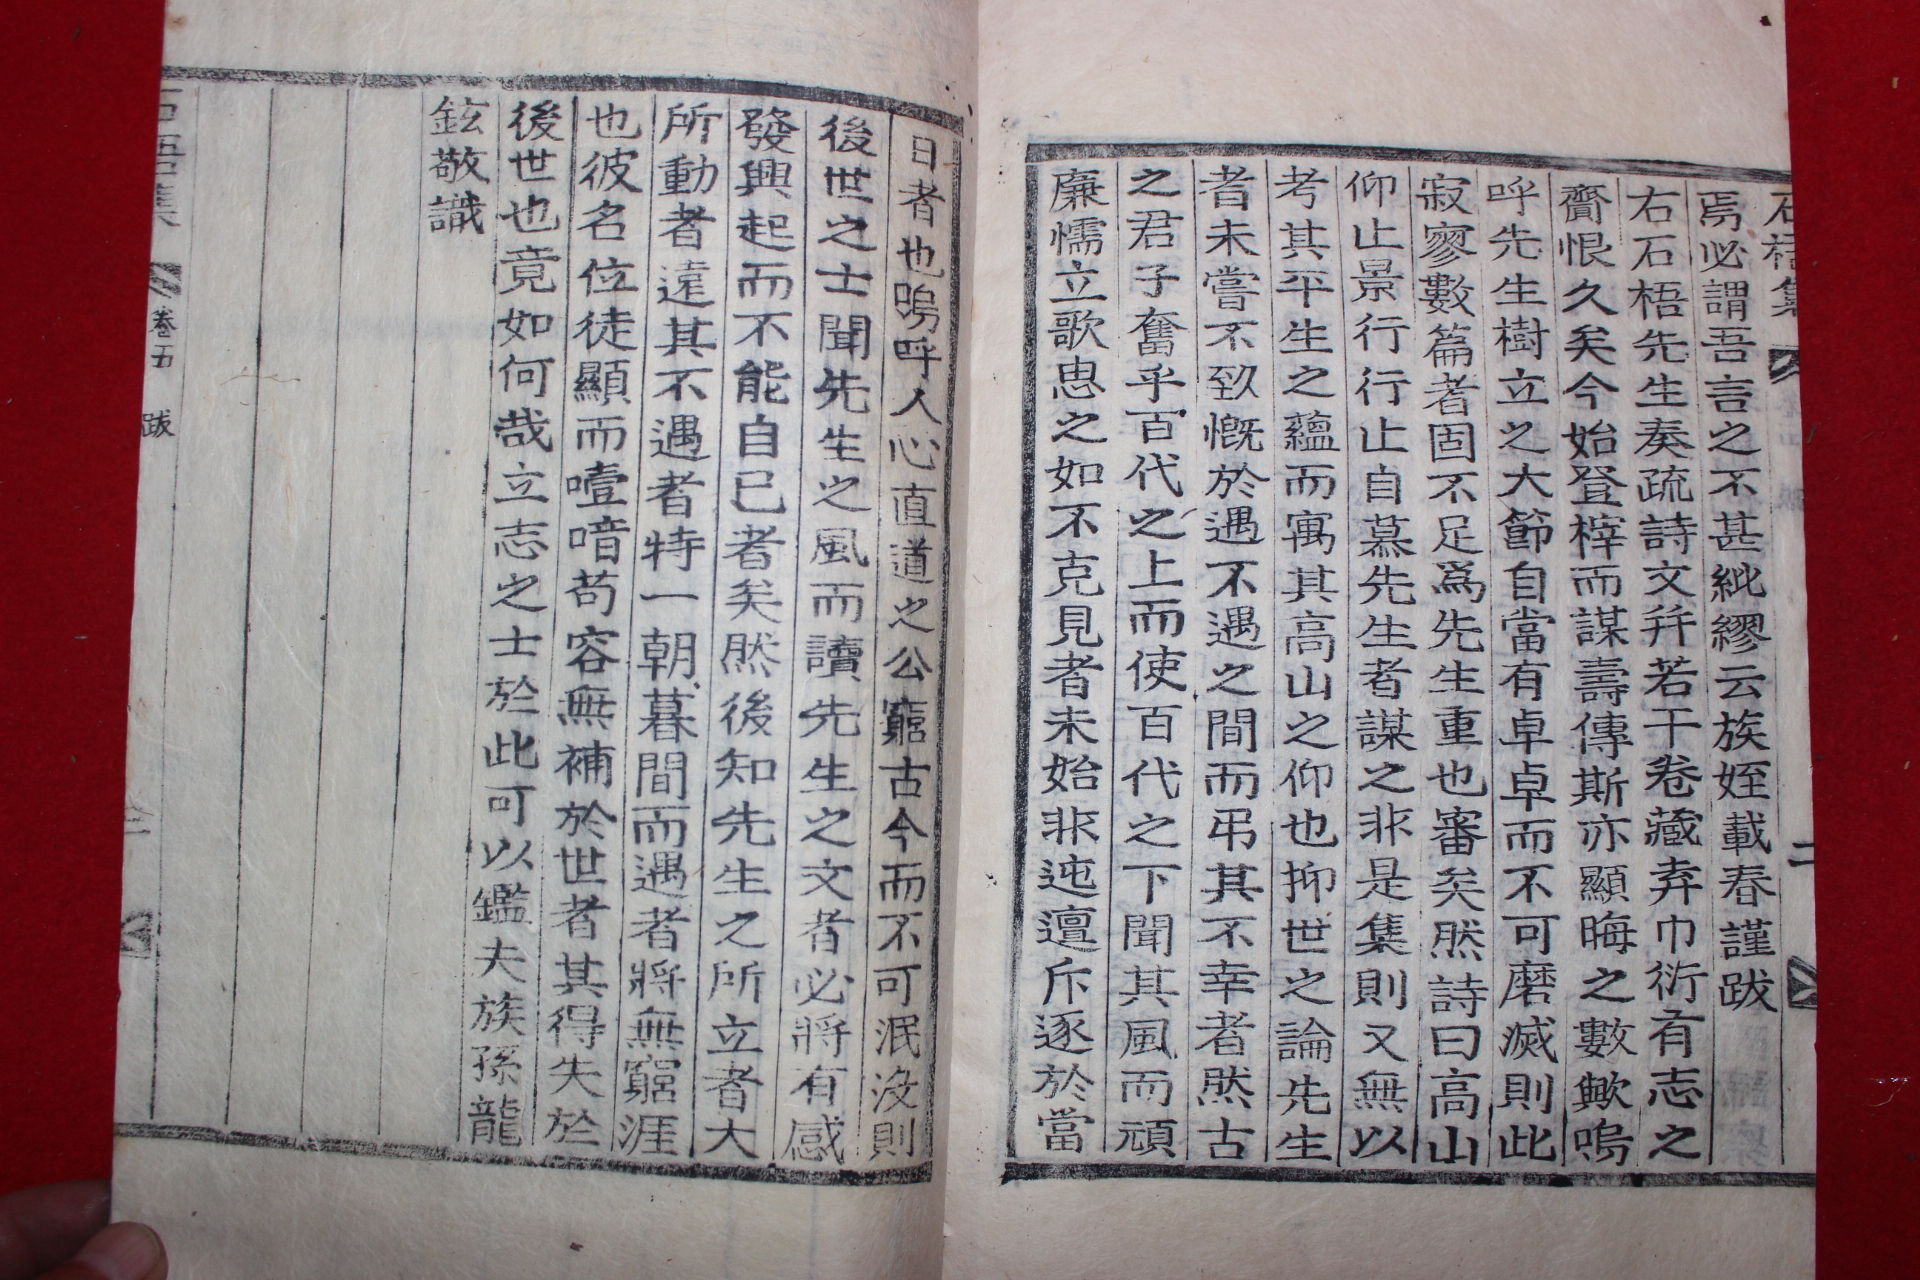 石梧集
二
焉必謂吾言之不甚紕繆云族姪載春謹跋
右石梧先生奏疏詩文幷若干卷藏弆巾衍有志之
齎恨久矣今始登梓而謀壽傳斯亦顯晦之數歟嗚
呼先生樹立之大節自當有卓卓而不可磨滅則此
寂寥數篇者固不足爲先生重也審矣然詩曰高山
仰止景行行止自慕先生者謀之非是集則又無以
考其平生之蘊而寓其高山之仰也抑世之論先生
者未嘗不致慨於遇不遇之間而弔其不幸者然古
之君子奮乎百代之上而使百代之下聞其風而頑
廉懦立歌思之如不克見者未始非迍邅斥逐於當
日者也嗚呼人心直道之公窮古今而不可泯沒則
後世之士聞先生之風而讀先生之文者必將有感
發興起而不能自已者矣然後知先生之所立者大
所動者遠其不遇者特一朝暮間而遇者將無窮涯
也彼名位徒顯而噎喑苟容無補於世者其得失於
後世也竟如何哉立志之士於此可以鑑夫族孫龍
鉉敬識
石梧集
卷五
跋